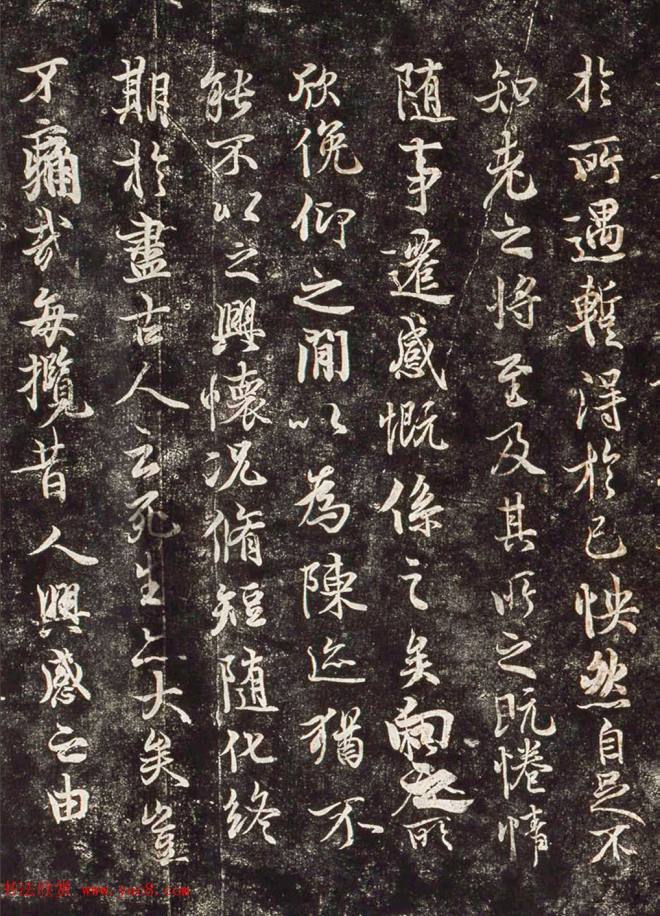 於所遇蹔得於己怏然自足不
知老之将至及其所之既惓情
随事遷感慨係之矣向之所
欣俛仰之間以為陳迹猶不
能不以之興懷況脩短随化終
期於盡古人云死生亦大矣豈
不痛哉每攬昔人興感之由
书法欣赏 www.yac8.com